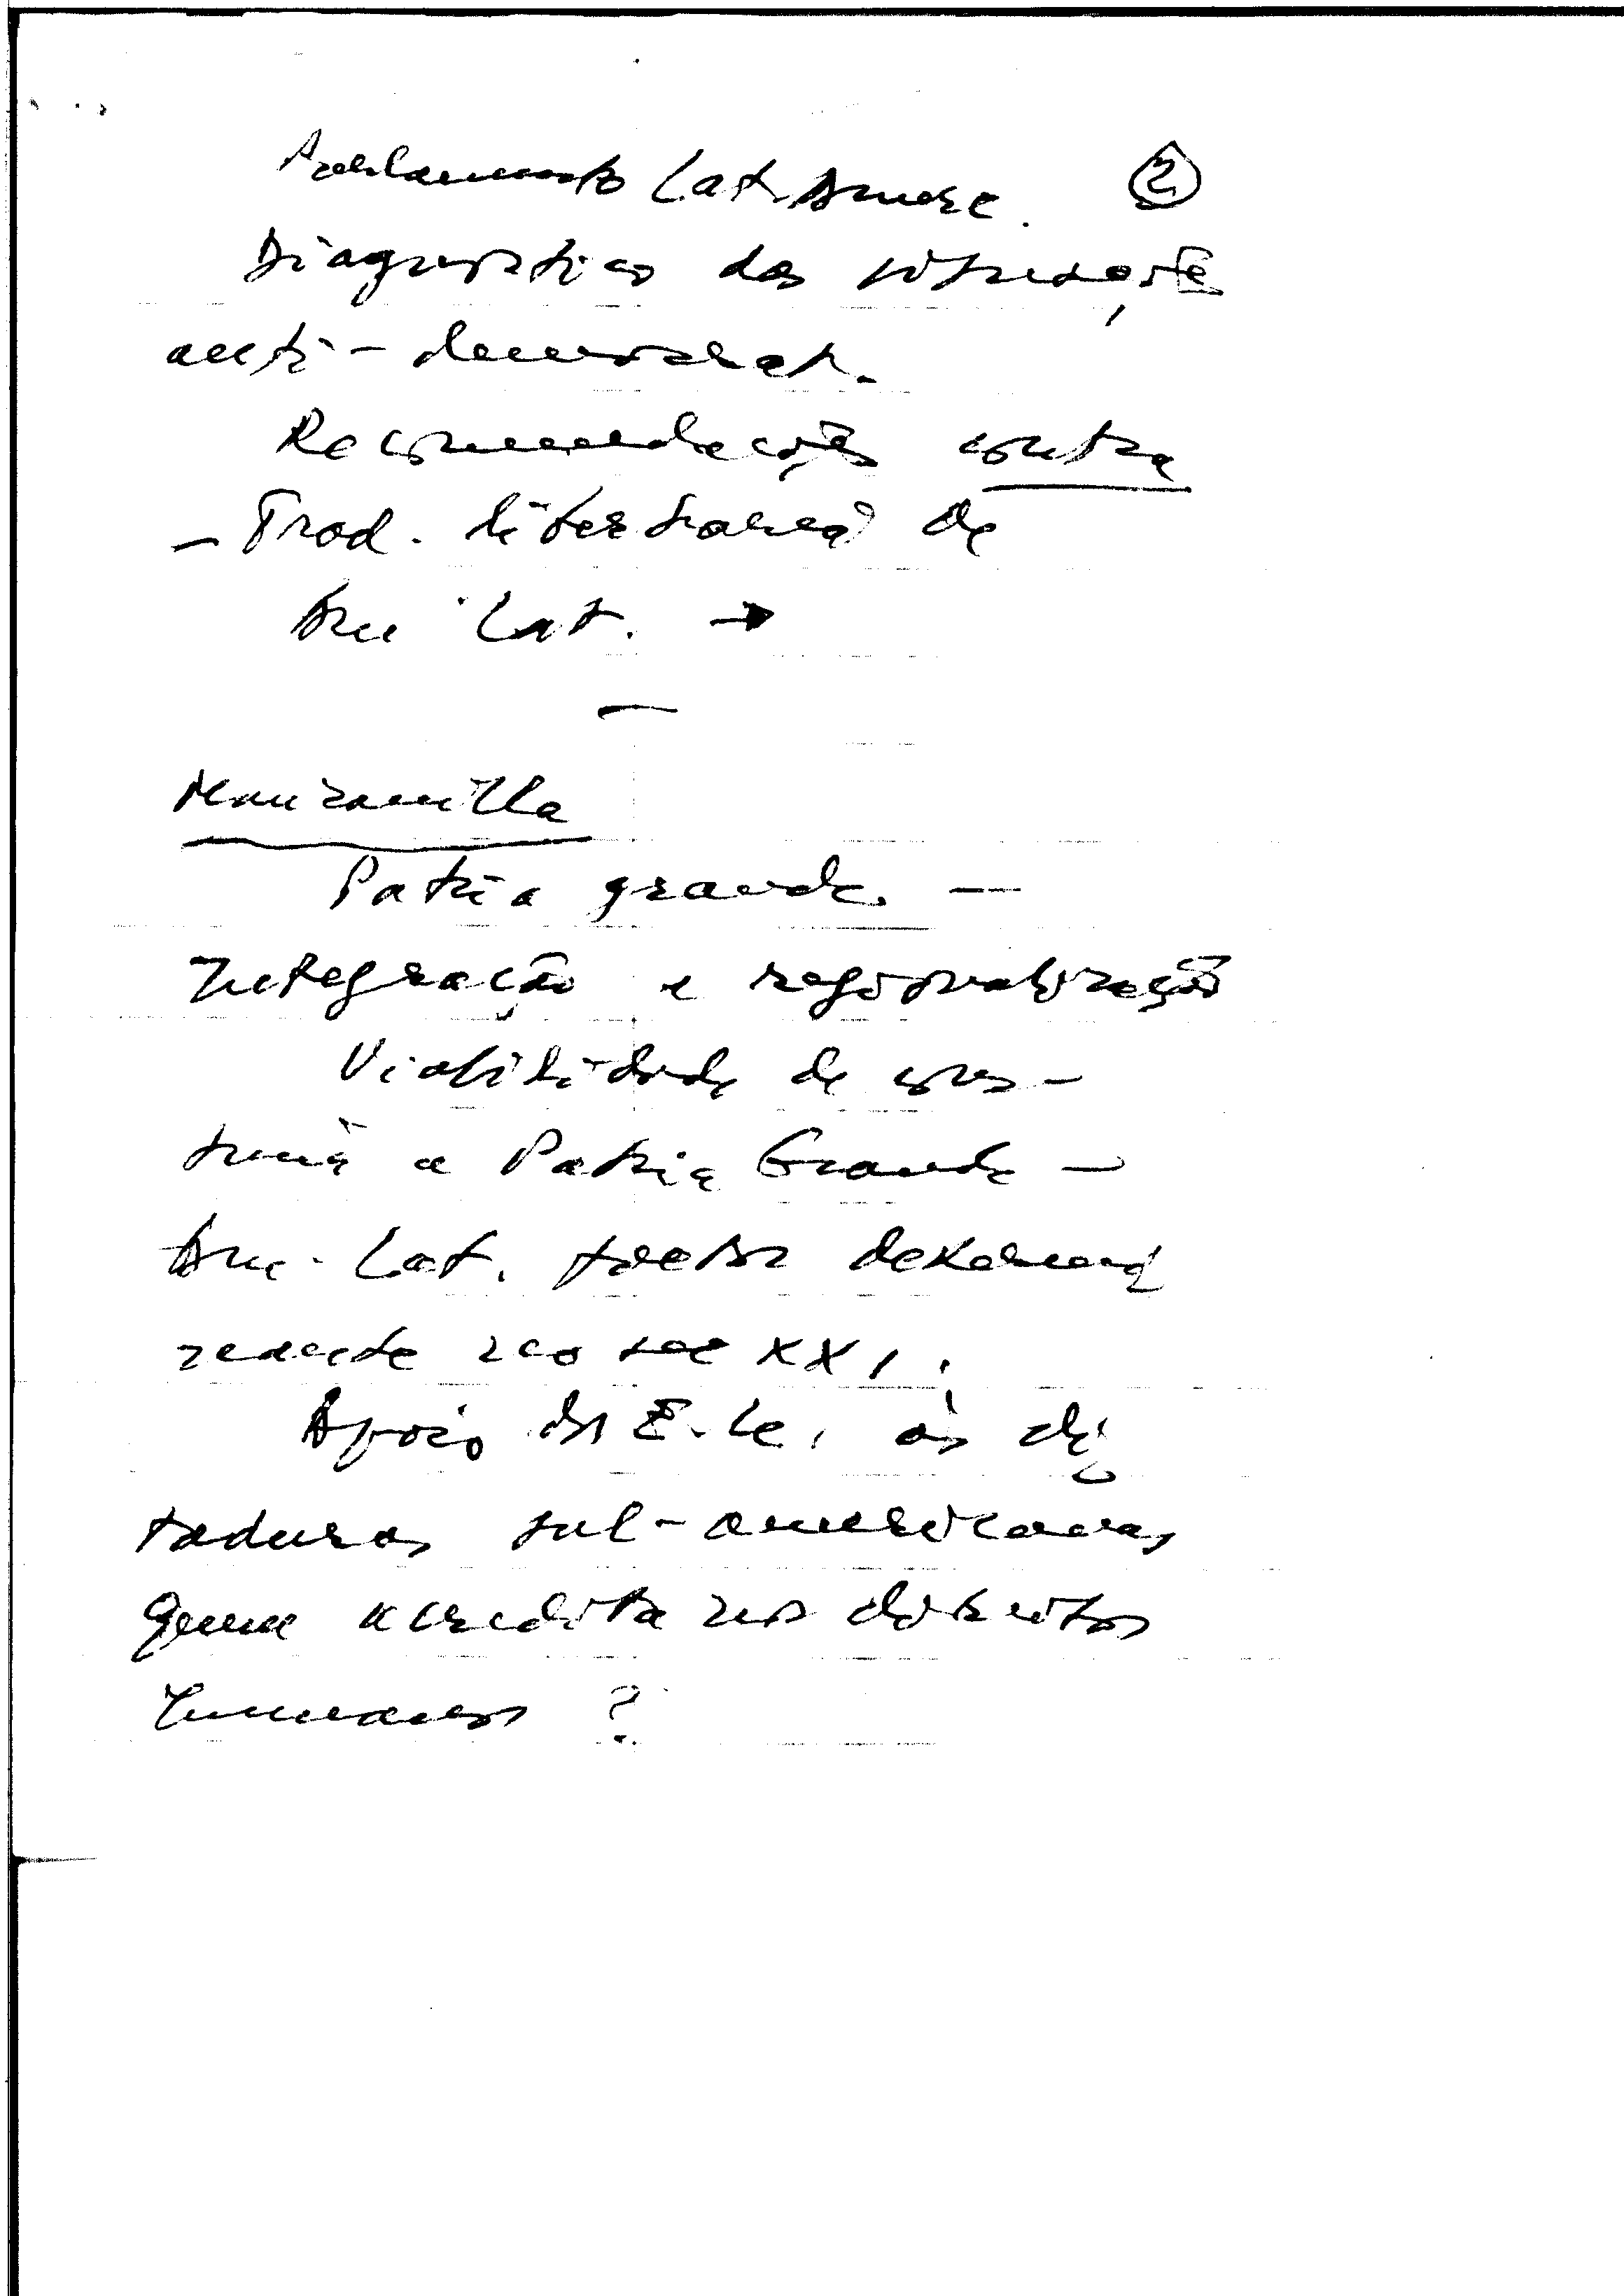 Parlamento Lat. Americ. ②
Diagnostico das situações
anti-democrat.
Recomendações contra
- Trad. libertaria de
Am Lat. →
—
Manzanilla
Patria grande. —
Integração e regionalização
Viabilidade de cons-
truir a Patria Grande —
Am. Lat. factor determi
nante no sec XXI.
Apoio dos E.U. as di
taduras sul-americanas,
Quem acredita nos direitos
humanos ?